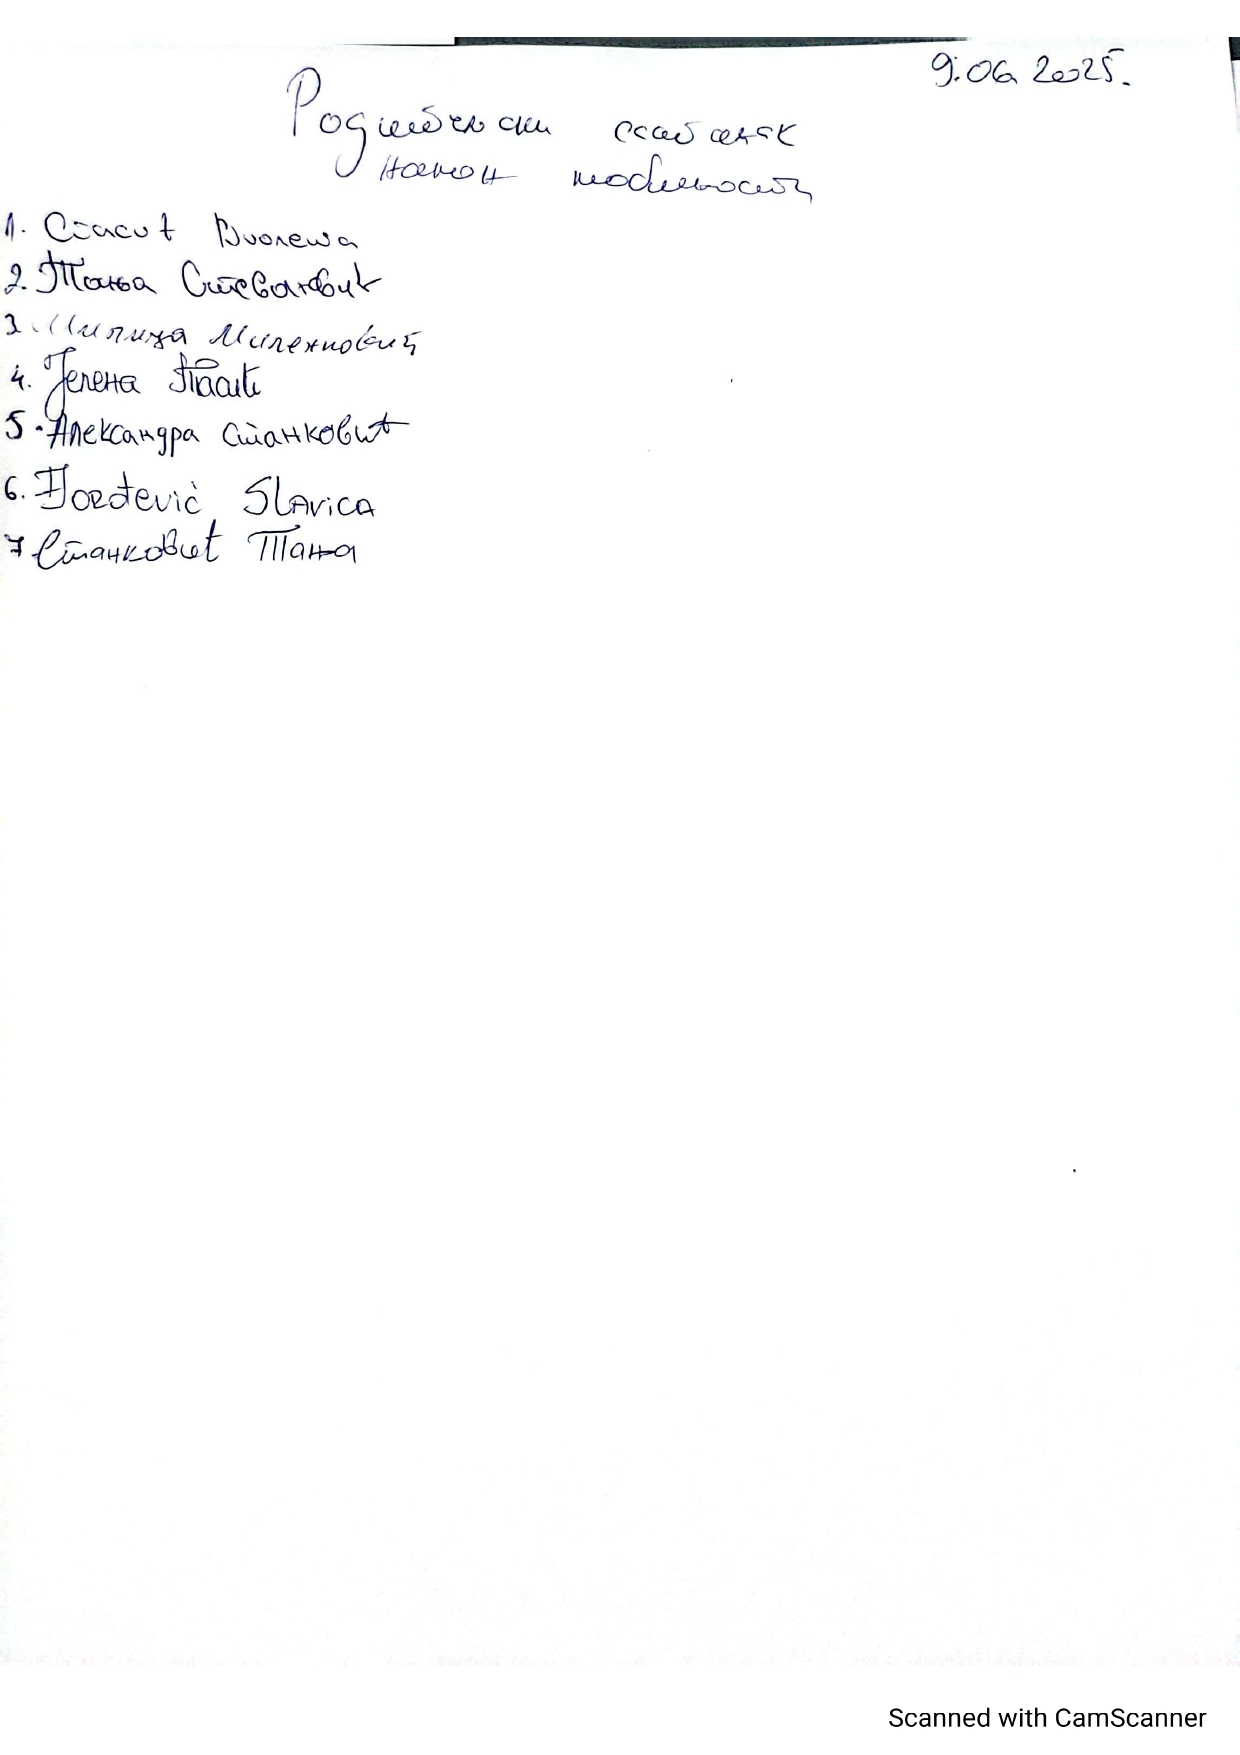 9.06. 2025.
Родитељски састанак
након
1. Спасић Виолета
2. Тања Стевановић
3. Милица Миленковић
4. Јелена Тасић
5. Александра Станковић
6. Đorđević Slavica
7 Станковић Тања
Scanned with CamScanner